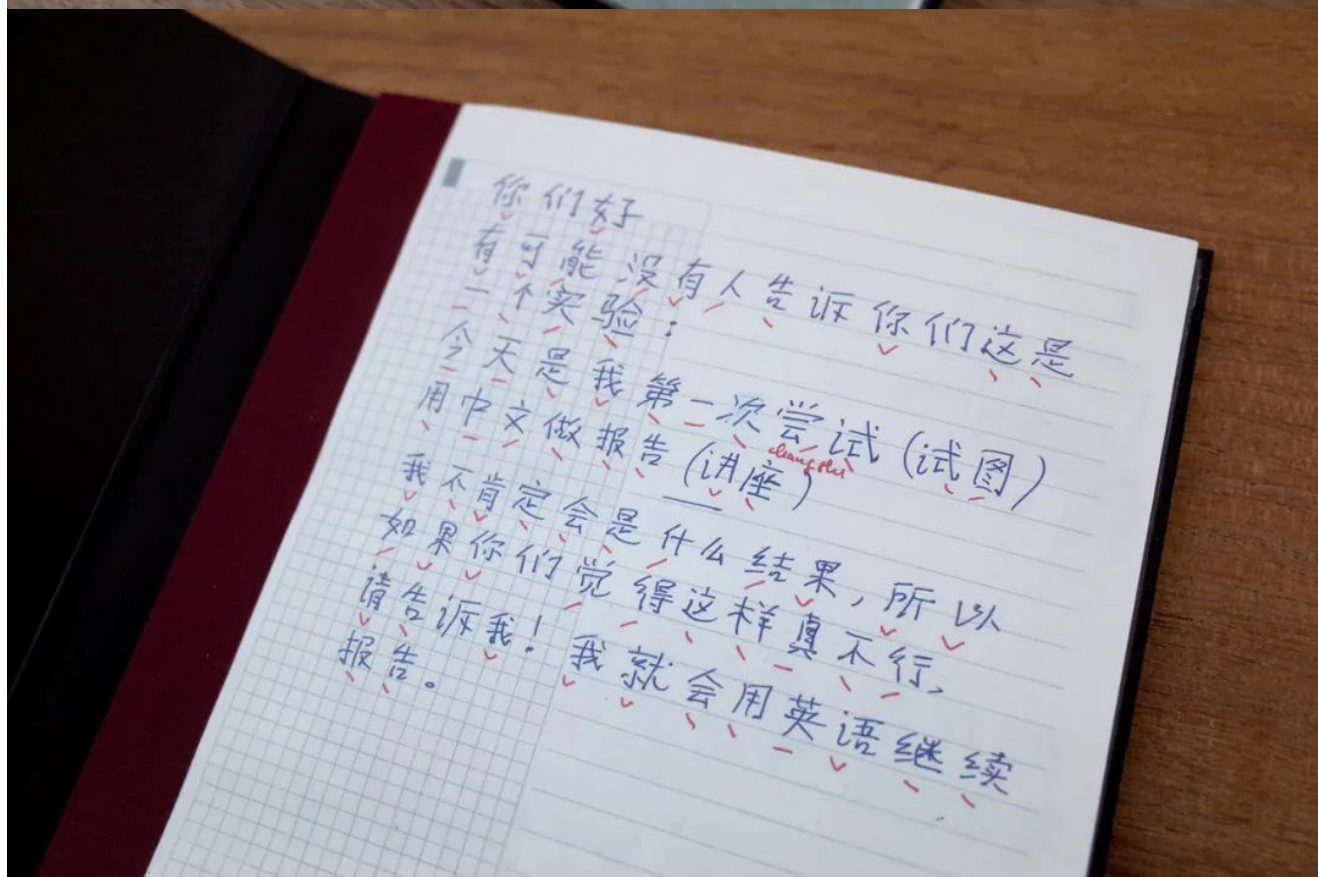 你们好
有可能没有人告诉你们这是
一个实验：
今天是我第一次尝试(试图)
chang shi
用中文做报告(讲座)
我不肯定会是什么结果，所以
如果你们觉得这样真不行，
请告诉我！我就会用英语继续
报告。